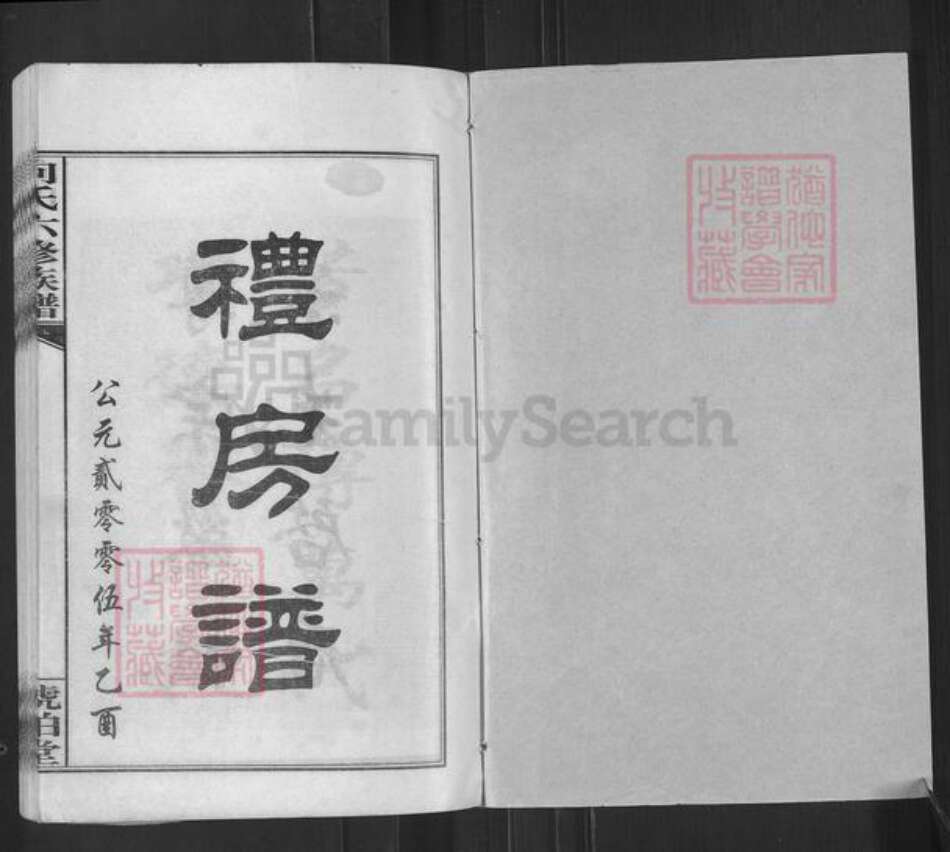 猶他家
譜學會
收藏
禮房譜
公元貳零零伍年乙酉
猶他家
譜學會
收藏
氏六修族譜
堂
FamilySearch